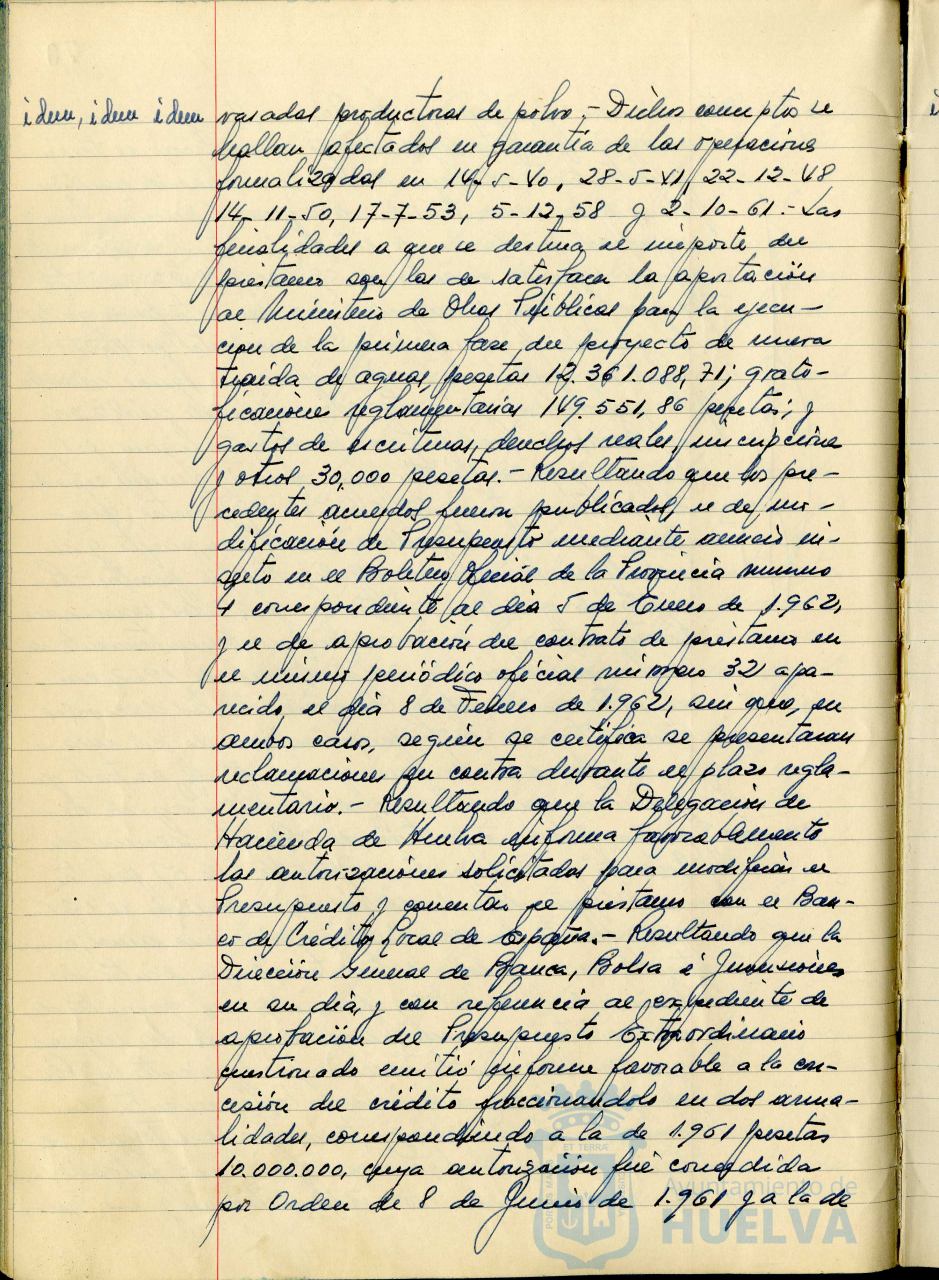 idem, idem idem
vasadas productoras de polvo.- Dichos conceptos se
hallan afectados en garantía de las operaciones
formalizadas en 14-5-40, 28-5-41, 22-12-48
14-11-50, 17-7-53, 5-12-58 y 2-10-61.- Las
finalidades a que se destina el importe del
préstamo son las de satisfacer la aportación
al Ministerio de Obras Públicas para la ejecu-
ción de la primera fase del proyecto de nueva
traída de aguas, pesetas 12.361.088,71; grati-
ficaciones reglamentarias 149.551,86 pesetas; y
gastos de escrituras, derechos reales, inscripciones
y otros, 30,000 pesetas.- Resultando que los pre-
cedentes acuerdos fueron publicados, el de mo-
dificación de Presupuesto mediante anuncio in-
serto en el Boletín Oficial de la Provincia número
4 correspondiente al día 5 de Enero de 1.962,
y el de aprobación del contrato de préstamo en
el mismo periódico oficial número 32 apa-
recido, el día 8 de Febrero de 1.962, sin que, en
ambos casos, según se certifica se presentaran
reclamaciones en contra durante el plazo regla-
mentario.- Resultando que la Delegación de
Hacienda de Huelva informa favorablemente
las autorizaciones solicitadas para modificar el
Presupuesto y concertar el préstamo con el Ban-
co de Crédito Local de España.- Resultando que la
Dirección General de Banca, Bolsa é Inversiones
en su día, y con referencia al expediente de
aprobación del Presupuesto Extraordinario
cuestionado emitió informe favorable a la con-
cesión del crédito fraccionándolo en dos anua-
lidades, correspondiendo a la de 1.961 pesetas
10.000.000, cuya autorización fué concedida
por Orden de 8 de Junio de 1.961 y a la de
Ayuntamiento de
HUELVA